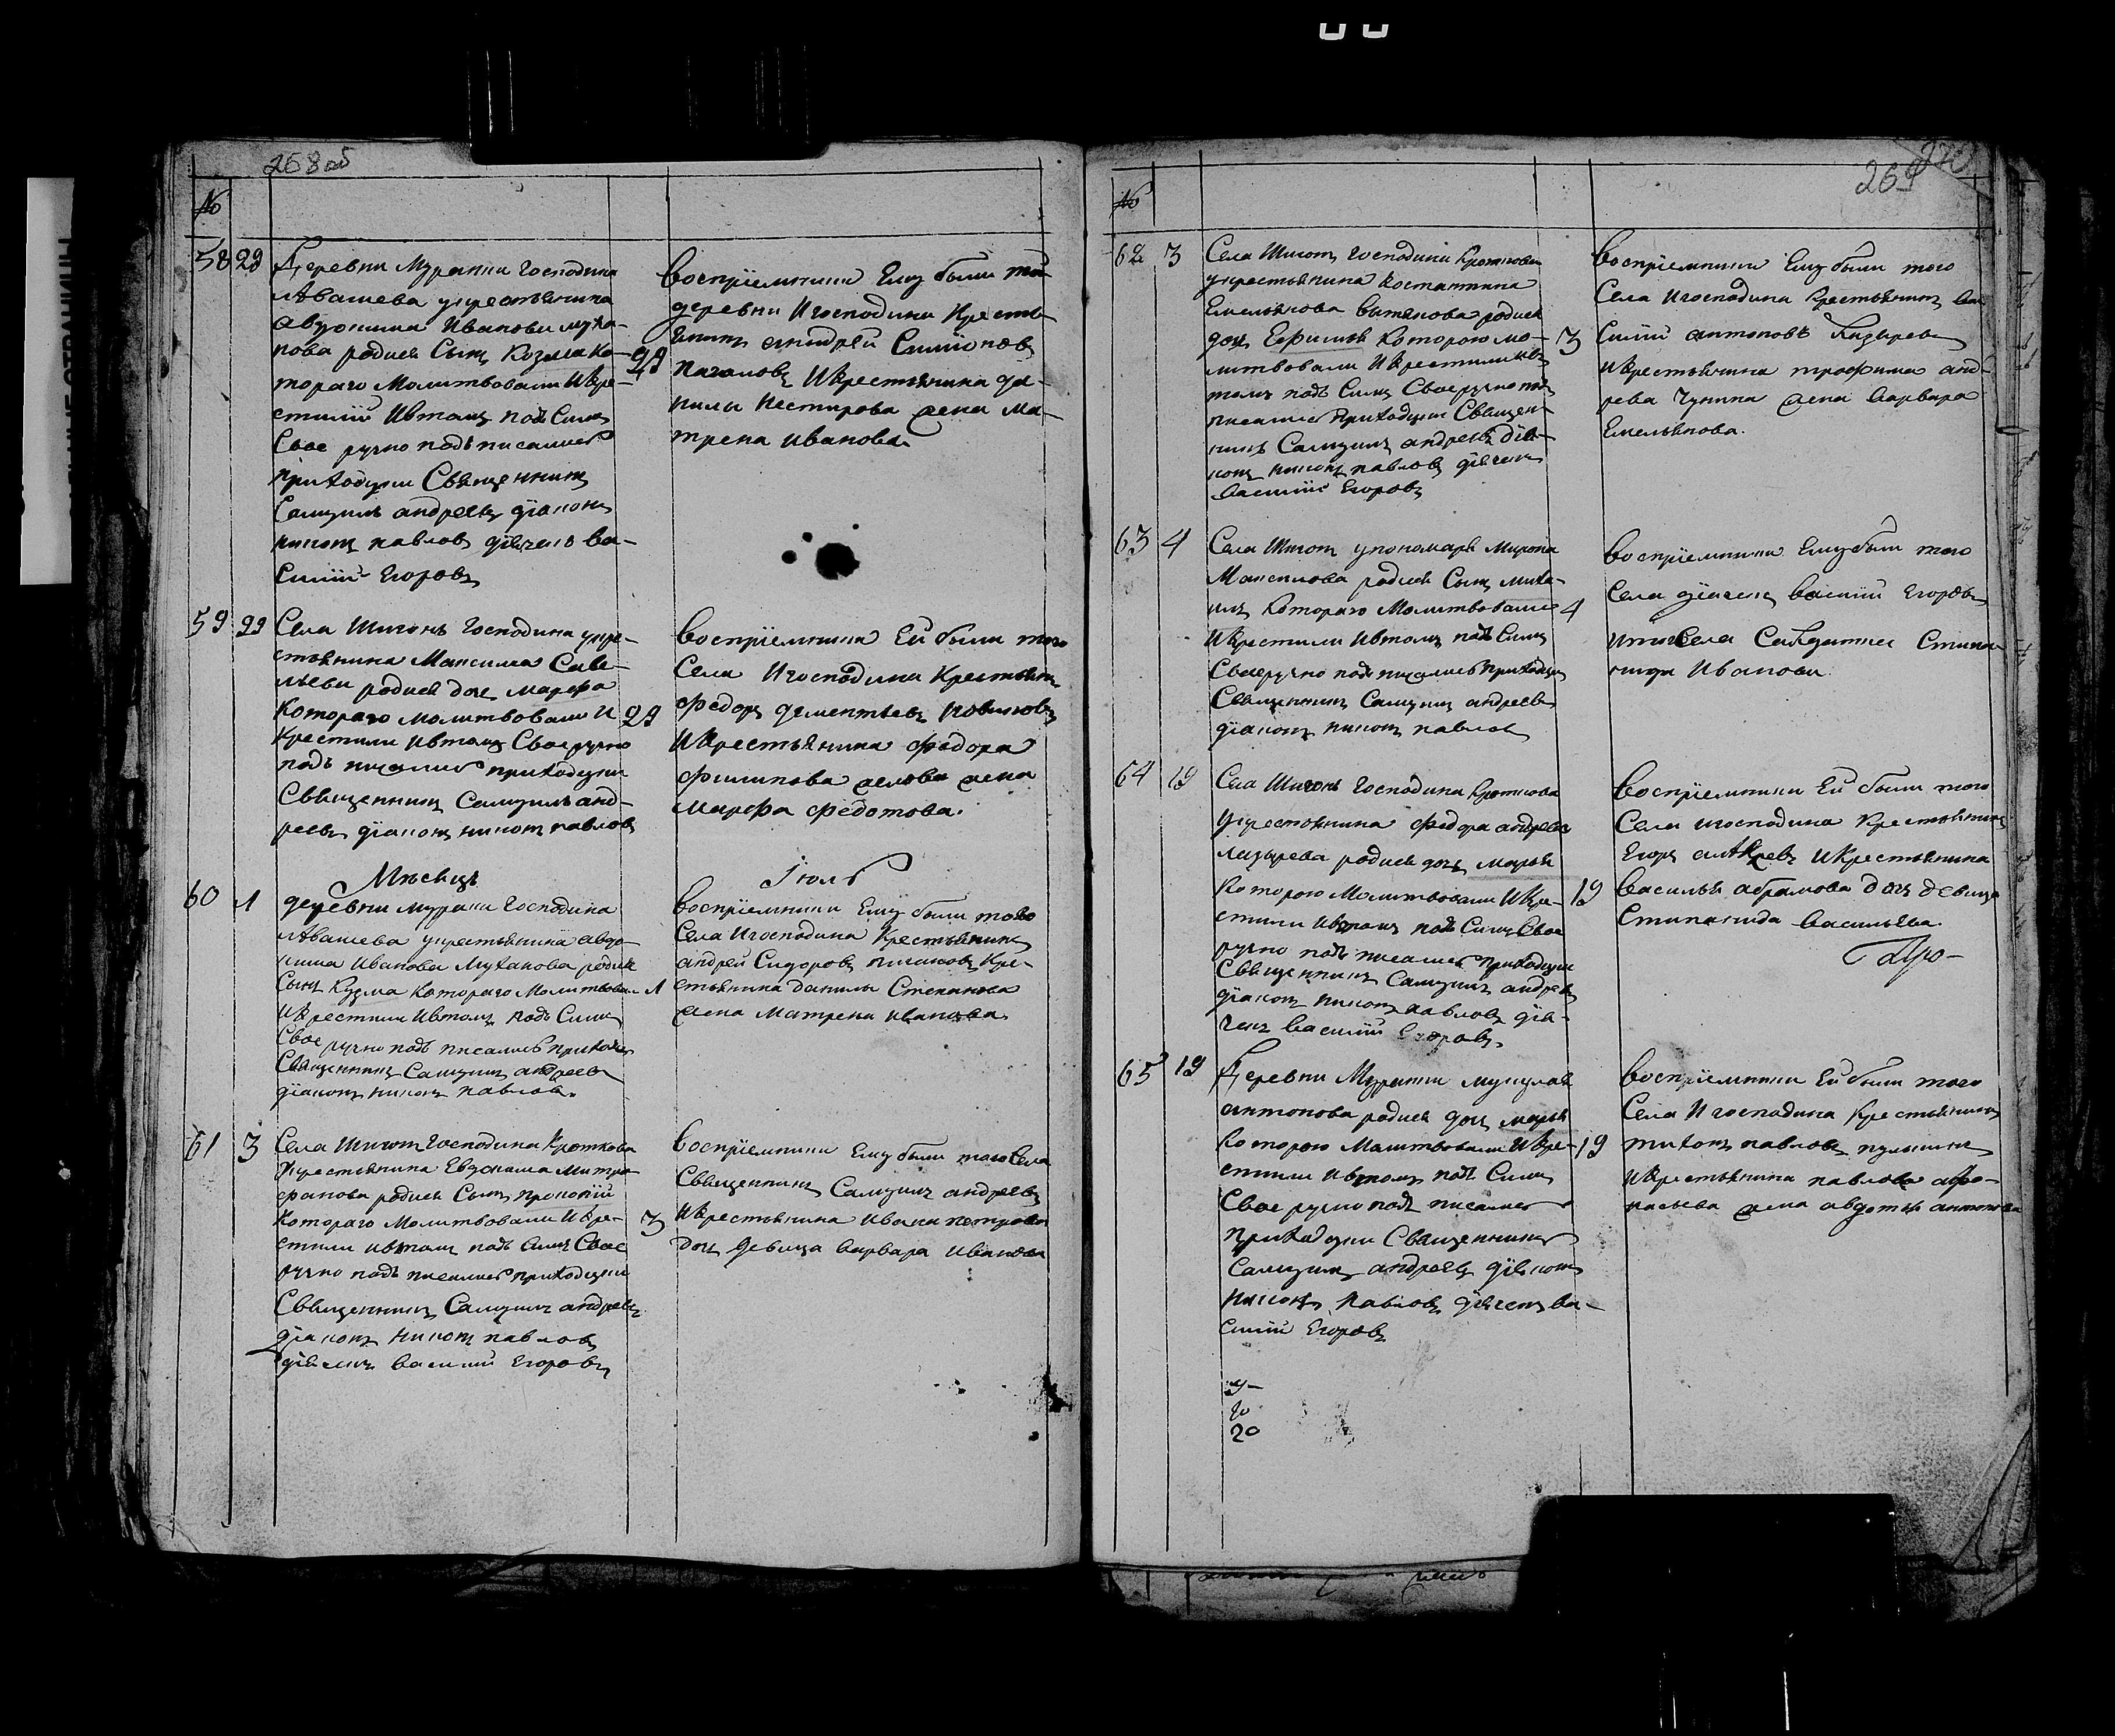 268 об
№
58 29
Деревни Муранки Господина
Авашева укрестьянина
авдокима Иванова муха-
нова родися Сынъ Козма ко-
тораго Молитвовали икре-
стили Ивтомъ подъ Симъ
Свое ручно подъписались
приходцкии Священникъ
Самуилъ андреевъ дiаконъ
никонъ павловъ дiячекъ ва-
силiй Егоровъ
29
восприемники Ему были той
деревни Игосподина Кресть-
янинъ андрей Симiоновъ
Икрестьянина да-
нилы Нестирова жена Ма-
трена иванова
59 29
Села Шигонъ Господина укре-
стьянина Максима Саве-
льева родися дочь марфа
Котораго молитвовали И
крестили Ивтомъ Своеручно
подъ писались приходцкии
Священникъ Самуилъ анд-
реевъ дiаконъ никонъ павловъ
29
восприемники Ей были того
Села Игосподина Крестьянинъ
федоръ дементьевъ новиковъ
Икрестьянина федора
филипова жена
марфа федотова.
Мѣсяцъ Iюль
60 1
деревни муранки Господина
Авашева укрестьянина авдо-
кима Иванова Муханова родися
Сынъ Кузма Котораго Молитвовали
Икрестили Ивтомъ подъ Симъ
Свое ручно подъ писались приходцкии
Священникъ Самуилъ андреевъ
дiаконъ никонъ павловъ.
1
восприемники Ему были того
Села Игосподина Крестьянинъ
андрей Сидоровъ Кре-
стьянина данилы Степанова
жена Матрена иванова
61 3
Села Шигонъ Господина Кроткова
укрестьянина Евдокима митро-
фанова родися Сынъ прокопiй
Котораго Молитвовали Икре-
стили ивтомъ подъ Симъ Свое
ручно подъ писались приходцкии
Священникъ Самуилъ андреевъ
дiаконъ никонъ павловъ
дiячекъ василий Егоровъ
3
восприемники Ему были того Села
Священникъ Самуилъ андреевъ
Икрестьянина Ивана петрова
дочь девица варвара Иванова
269
270
№
62 3
Села Шигонъ Господина Кроткова
укрестьянина Костантина
Емельянова родися
дочь Ефимья Которою мо-
литвовали Икрестили ив-
томъ подъ Симъ Своеручно под-
писались приходцкии Священ-
никъ Самуилъ андреевъ дiя-
конъ никонъ павловъ дiячекъ
василiй Егоровъ
3
восприемники Ему были того
Села Игосподина Крестьянинъ ва-
силiй антоновъ
икрестьянина трофима анд-
рева Чунина жена варвара
Емельянова.
63 4
Села Шигонъ упономаря Мирона
Максимова родися Сынъ миха-
илъ Котораго Молитвовали
Икрестили Ивтомъ подъ Симъ
Своеручно подъ писались приходцкии
Священникъ Самуилъ андреевъ
дiаконъ никонъ павловъ
4
восприемники Ему были того
Села дiячекъ василiй Егоровъ
итогоСела Салдатка Степа-
нида Иванова.
64 19
Села Шигонъ Господина Кроткова
Укрестьянина федора андреева
родися дочь марья
Которою Молитвовали Икре-
стили Ивтомъ подъ Симъ Свое
ручно подъ писались приходцкии
Священникъ Самуилъ андреевъ
дiаконъ никонъ павловъ дiя-
чекъ василiй Егоровъ.
19
восприемники Ей были того
Села игосподина Крестьянинъ
Егоръ Икрестьянина
василья абрамова дочь девица
Степанида васильева.
65 19
Деревни Муранки
антонова родися дочь марья
Которою Малитвовали Икре-
стили Ивтомъ подъ Симъ
Свое ручно подъ писались
Приходцкии Священникъ
Самуилъ андреевъ дiяконъ
никонъ павловъ дiячекъ ва-
силiй Егоровъ
19
восприемники Ей были того
Села Игосподина Крестьянинъ
тихонъ павловъ
Икрестьянина павлова афо-
насьева жена авдотья антонова
20